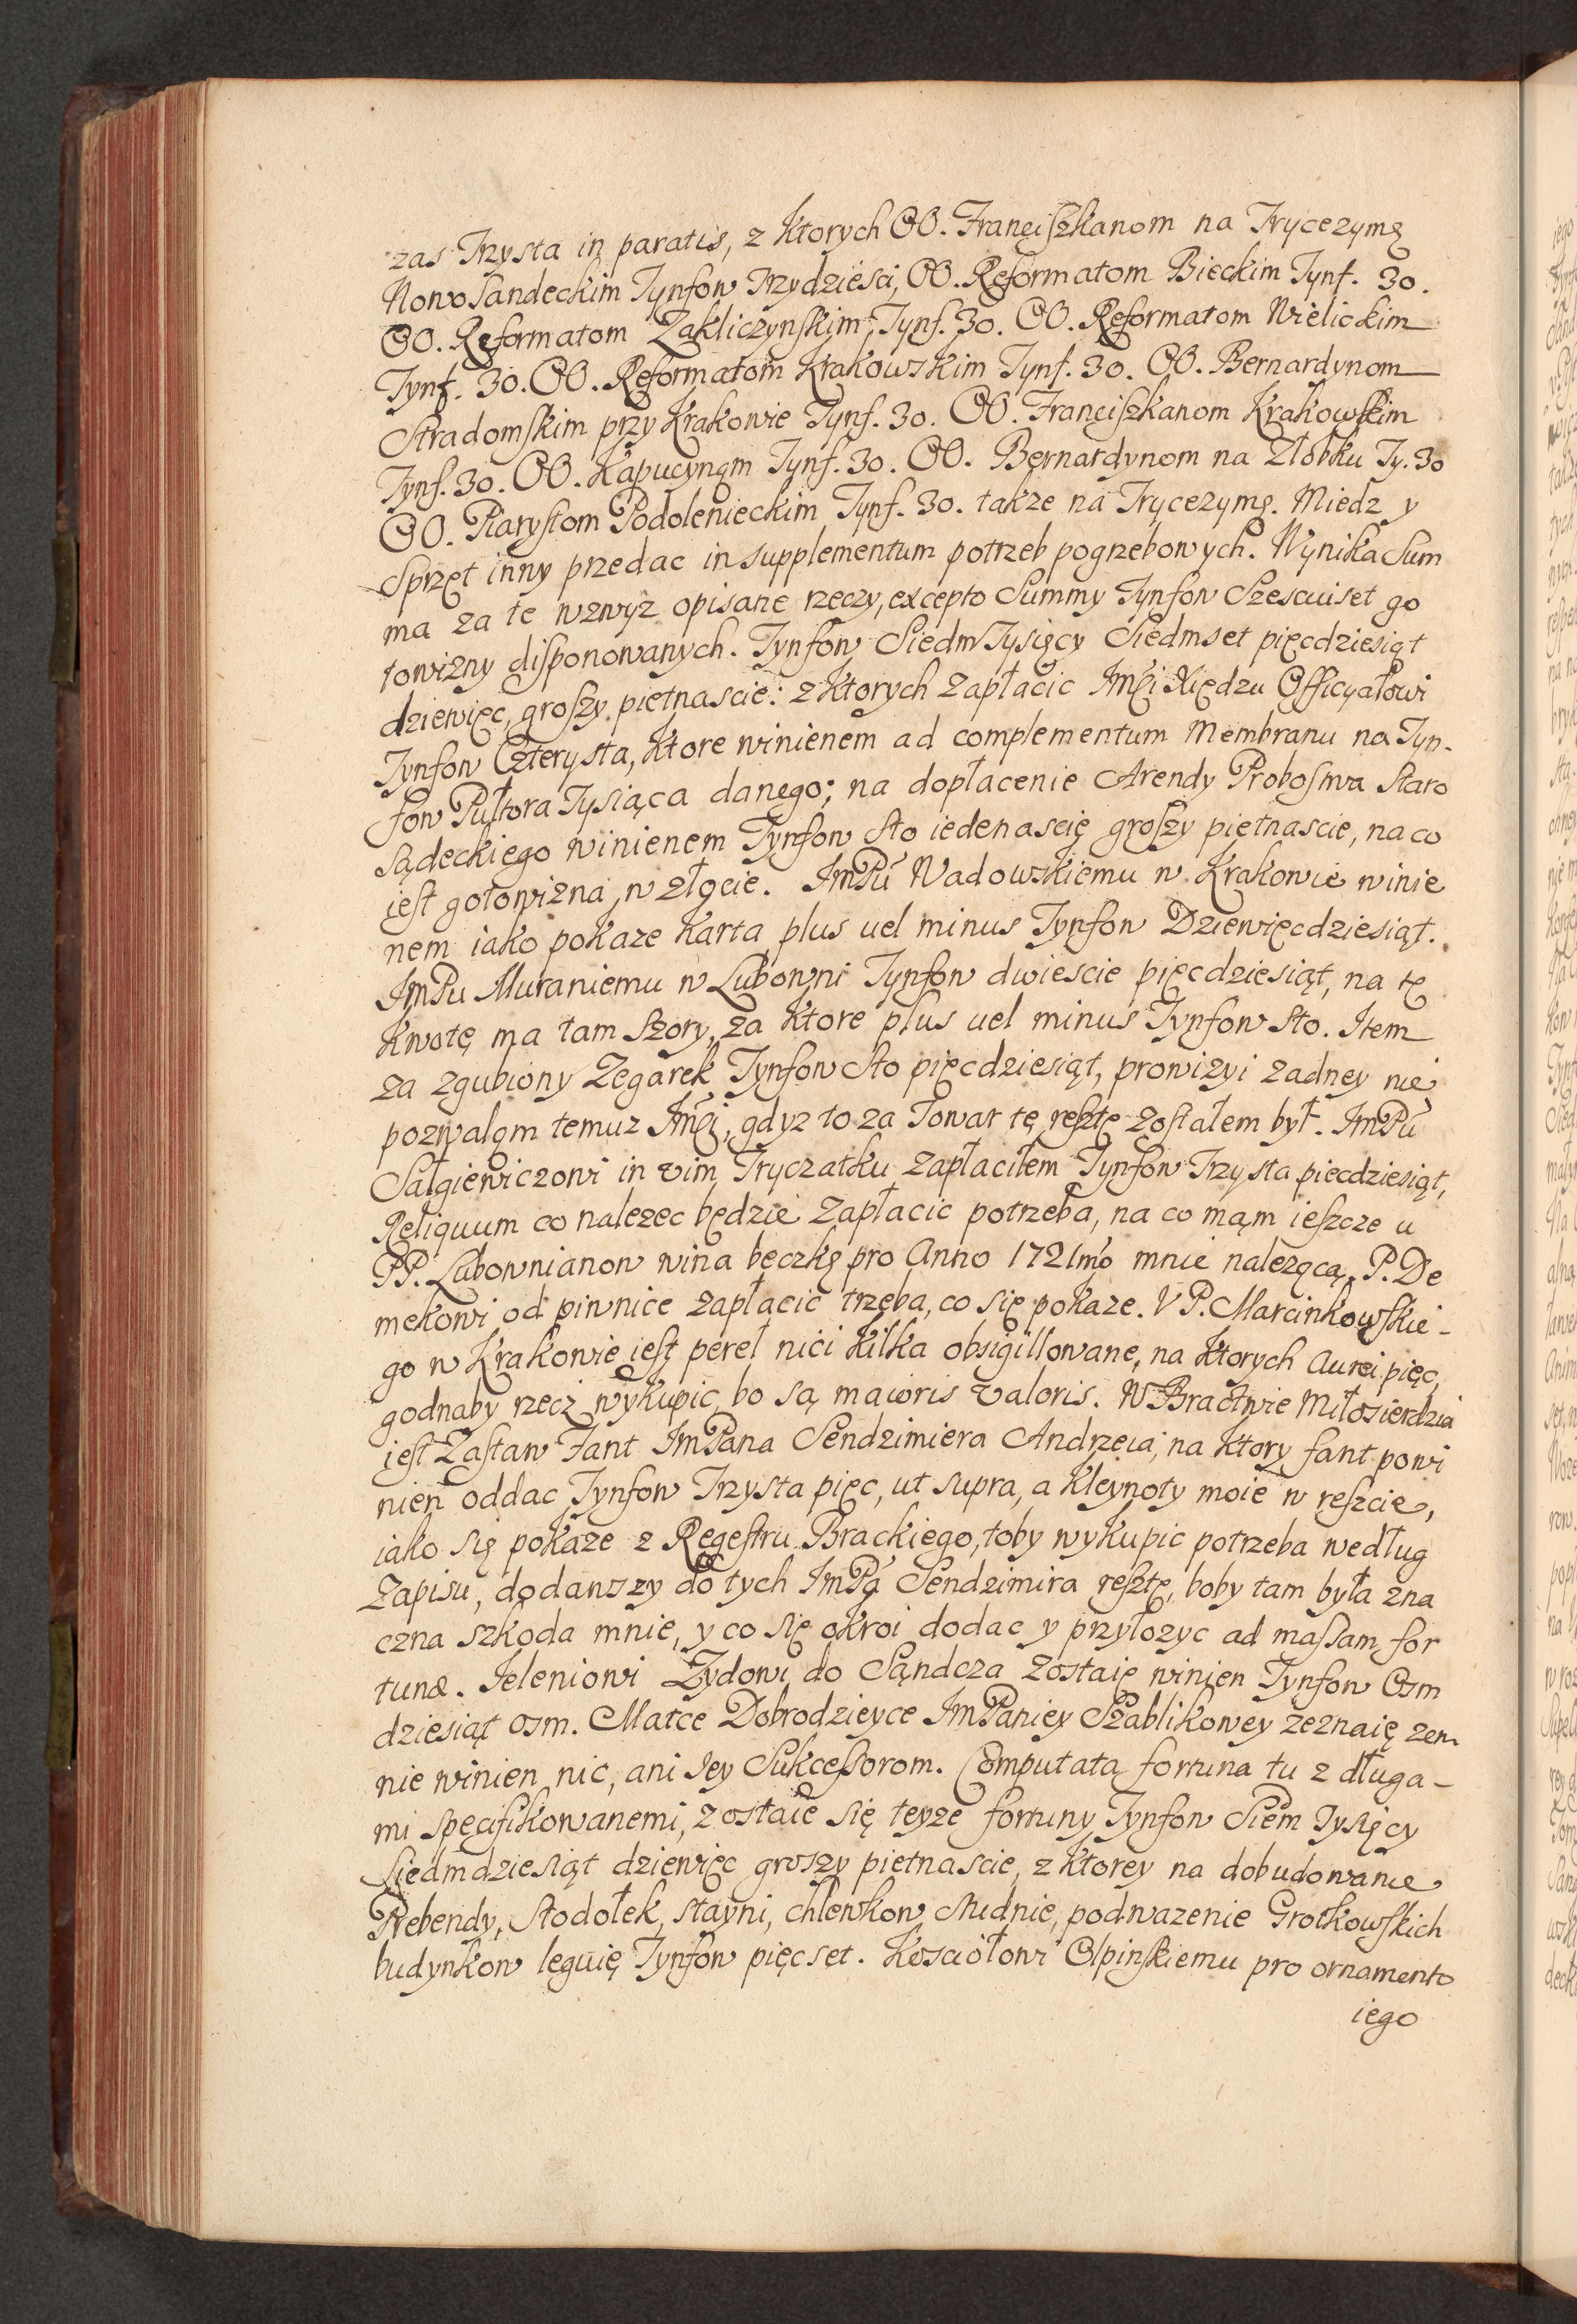 zas Trzysta in paratis, z Ktorych OO. Franciszkanom na Trycezymę
NowoSandeckim Tynfow Trzydziesci, OO. Reformatom Bieckim Tynf. 30.
OO. Reformatom Zakliczynskim Tynf. 30. OO. Reformatom Wielickim
Tynf. 30. OO. Reformatom Krakowskim Tynf. 30. OO. Bernardynom
Stradomskim przy Krakowie Tynf. 30. OO. Franciszkanom Krakowskim
Tynf. 30. OO. Kapucynom Tynf. 30. OO. Bernardynom na Złobku Ty. 30
OO. Piarystom Podolenieckim Tynf. 30. takze na Trycezymę. Miedz y
Sprzęt inny przedac in supplementum potrzeb pogrzebowych. Wynika Sum
ma za te wzwyz opisane rzeczy, excepto Summy Tynfow Szesciuset go
towizny disponowanych. Tynfow Siedm Tysięcy Siedmset pięcdziesiąt
dziewięc, groszy pietnascie: z Ktorych zapłacic Jmći Xiędzu Officyałowi
Tynfow Czterysta, Ktore winienem ad complementum Membranu na Tyn-
fow Pułtora Tysiąca danego; na dopłacenie Arendy Probostwa Staro
sądeckiego winienem Tynfow Sto iedenascię groszy pietnascie, na co
iest gotowizna w złocie. JmPu Wadowskiemu w Krakowie winie
nem iako pokaze Karta plus uel minus Tynfow Dziewięcdziesiąt.
JmPu Muraniemu w Lubowni Tynfow dwiescie pięcdziesiąt, na tę
Kwotę ma tam Szory, za Ktore plus uel minus Tynfow Sto. Item
za zgubiony Zegarek Tynfow Sto pięcdziesiąt, prowizyi zadney nie
pozwalam temuz Jmći, gdyz to za Towar tę resztę zostałem był. JmPu
Sałgiewiczowi in vim Tryczatku zapłaciłem Tynfow Trzysta piecdziesiąt,
Reliquum co nalezec będzie zapłacic potrzeba, na co mąm ieszcze u
PP. Lubownianow wina beczkę pro Anno 1721mo mnie nalezącą. P. De
mekowi od piwnice zapłacic trzeba, co się pokaze. V P. Marcinkowskie-
go w Krakowie iest pereł nici Kilka obsigillowane, na Ktorych Aurei pięc,
godnaby rzecz wykupic, bo są maioris valoris. W Bractwie Miłosierdzia
iest Zastaw Fant JmPana Sendzimiera Andrzeia, na Ktory fant powi
nien oddac Tynfow Trzysta pięc, ut supra, a Kleynoty moie w reszcie,
iako się pokaze z Regestru Brackiego, toby wykupic potrzeba według
Zapisu, dodawszy do tych JmPa Sendzimira resztę, boby tam była zna
czna szkoda mnie, y co się okroi dodac y przyłozyc ad massam for
tunæ. Jeleniowi Zydowi do Sąndcza zostaię winien Tynfow Osm
dziesiąt osm. Matce Dobrodzieyce JmPaniey Szablikowey zeznaię zem
nie winien nic, ani Jey Sukcessorom. Computata fortuna tu z długa-
mi specifikowanemi, zostaie się teyze fortuny Tynfow Siem Tysięcy
Siedmdziesiąt dziewięc groszy pietnascie, z Ktorey na dobudowanie
Prebendy, Stodołek, stayni, chlewkow, studnie, podwazenie Grotkowskich
budynkow leguię Tynfow pięcset. Kosciołowi Olpinskiemu pro ornamento
iego